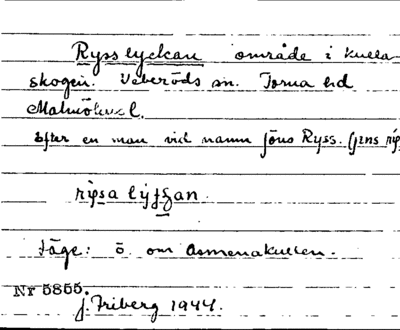 Rysslyckan område i Kulla
skogen. Veberöds sn. Torna hd
Malmöhus l.
Efter en man vid namn Jöns Ryss. (jens
Läge: ö. om Asmenakullen.
Nr 5855.
J. Friberg 1944.